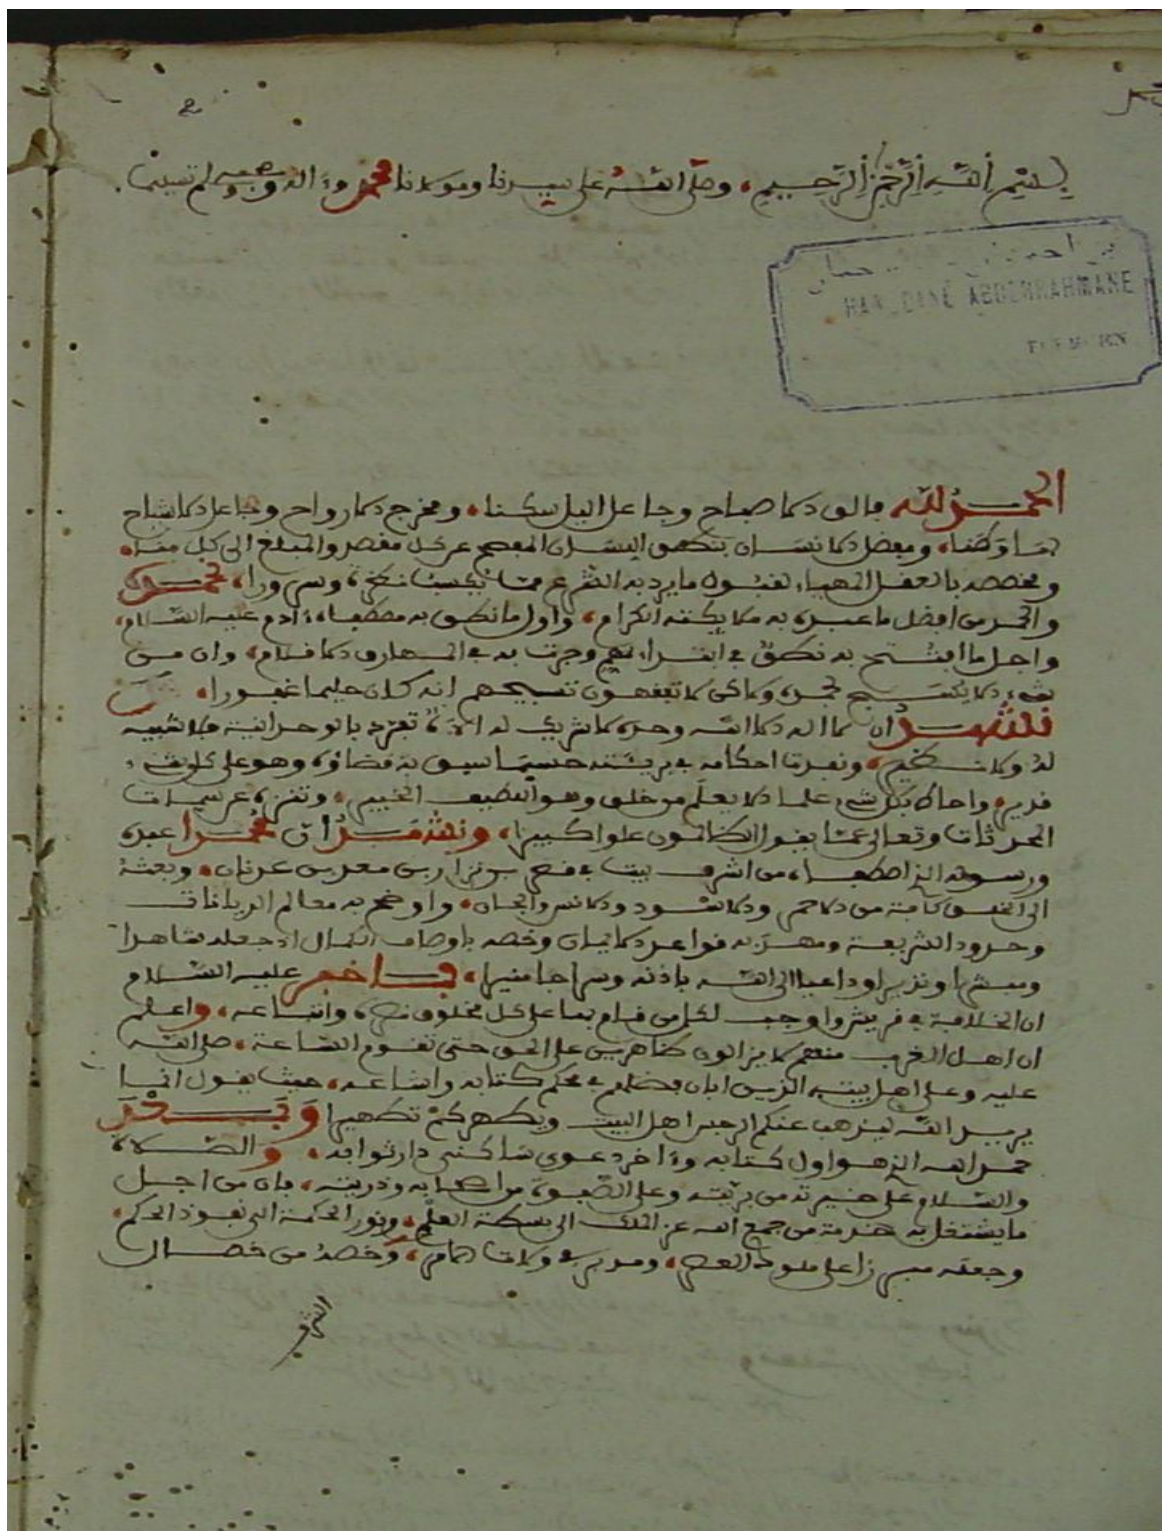 بسم الله الرحمن الرحيم وصلى الله على سيدنا ومولانا محمد وءاله وصحبه وسلم تسليما
HAMIDANE ABDERRAHMANE
TLEMCEN
الحمد لله فالق الاصباح وجاعل اليل سكنا ومخرج الارواح وجاعل الاشباح
لها وطنا ومفضل الانسان بنطق اللسان المفصح عن كل مقصد والمبلغ الى كل منا
ومخصصه بالعقل المهيا لقبول ما يرد به الشرع نضرة وسرورا نحمده
والحمد من افضل ما عبده به ملايكته الكرام واول ما نطق به مصطفاه ءادم عليه السلام
واجل ما افتتح به نطق في ابتداء وجرت به في المهارق الاقلام وان من
شيء الا يسبح بحمده ولاكن لا تفقهون تسبيحهم انه كان حليما غفورا
نشهد ان لا اله الا الله وحده لا شريك له الاه تفرد بالوحدانية فلا شبيه
له ولا نظير ونفذت احكامه في بريته حسبما سبق به قضاؤه وهو على كل شيء
قدير واحاط بكل شيء علما الا يعلم من خلق وهو اللطيف الخبير وتنزه عن سمات
المحدثات وتعالى عما يقول الظالمون علوا كبيرا ونشهد ان محمدا عبده
ورسوله الذي اصطفاه من اشرف بيت في نزار بن معد بن عدنان وبعثه
الى الخلق كافة من الاحمر والاسود والانس والجان واوضح به معالم الديانات
وحدود الشريعة ومهد به قواعد الايمان وخصه باوصاف الكمال اذ جعله شاهدا
ومبشرا ونذيرا وداعيا الى الله باذنه وسراجا منيرا فاخبر عليه السلام
ان الخلافة في قريش واوجب لكل من قام بها على كل مخلوق نصره واتباعه واعلم
ان اهل الغرب منهم لا يزالون ظاهرين على الحق حتى تقوم الساعة صلى الله
عليه وعلى اهل بيته الذين ابان فضلهم في محكم كتابه واشاعه حيث يقول انما
يريد الله ليذهب عنكم الرجس اهل البيت ويطهركم تطهيرا وبعد
حمد الله الذي هو اول كتابه وءاخر دعوى ساكني دار ثوابه والصلاة
والسلام على خيرته من بريته وعلى الصفوة من اصحابه وذريته فان من اجل
ما يشتغل به خدمة من جمع الله عز الملك الى بسطة العلم ونور الحكمة الى نفوذ الحكم
وجعله مبرزا على ملوك العصر ومدبري ولات الامر وخصه من خصال
الشرف